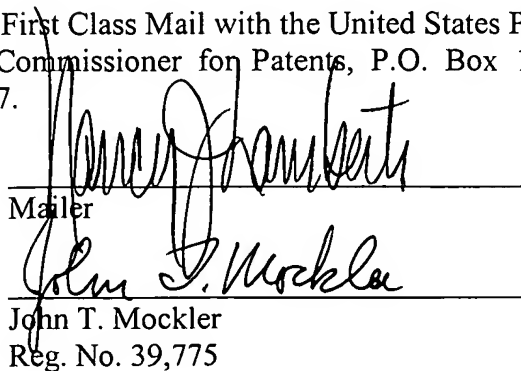 First Class Mail with the United States P
Commissioner for Patents, P.O. Box 1
7.
Nancy J. Lamberti
Mailer
John T. Mockler
John T. Mockler
Reg. No. 39,775